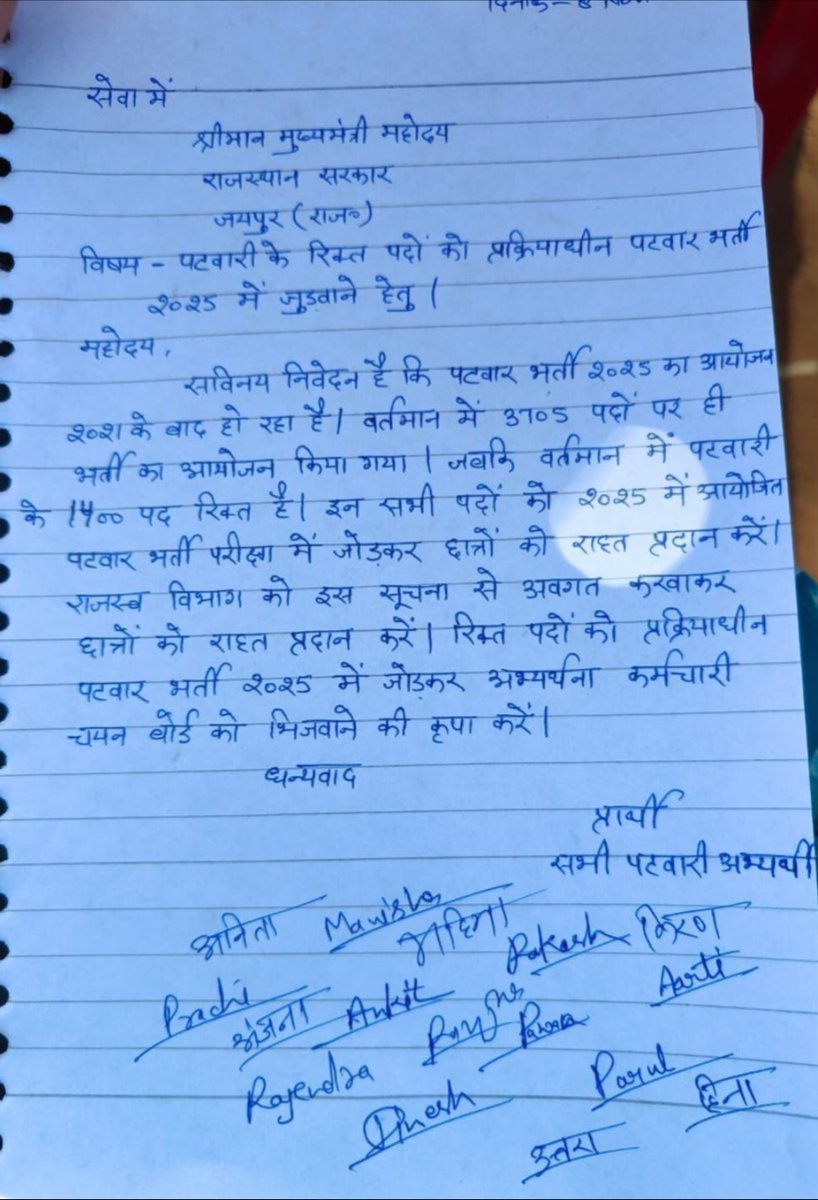 दिनांक - 8 Nov
सेवा में
श्रीमान मुख्यमंत्री महोदय
राजस्थान सरकार
जयपुर (राज०)
विषय - पटवारी के रिक्त पदों को प्रक्रियाधीन पटवार भर्ती
२०२५ में जुड़वाने हेतु |
महोदय,
सविनय निवेदन है कि पटवार भर्ती २०२५ का आयोजन
२०२१ के बाद हो रहा है| वर्तमान में 3705 पदों पर ही
भर्ती का आयोजन किया गया | जबकि वर्तमान में पटवारी
के 1400 पद रिक्त है| इन सभी पदों को २०२५ में आयोजित
पटवार भर्ती परीक्षा में जोड़कर छात्रों को राहत प्रदान करें|
राजस्व विभाग को इस सूचना से अवगत करवाकर
छात्रों को राहत प्रदान करें| रिक्त पदों को प्रक्रियाधीन
पटवार भर्ती २०२५ में जोड़कर अभ्यर्थना कर्मचारी
चयन बोर्ड को भिजवाने की कृपा करें|
धन्यवाद
प्रार्थी
सभी पटवारी अभ्यर्थी
अनिता Manisha Rakesh किरण
Prachi अंजना Ankit Aarti
Rajendra
Dinesh Parul हिना